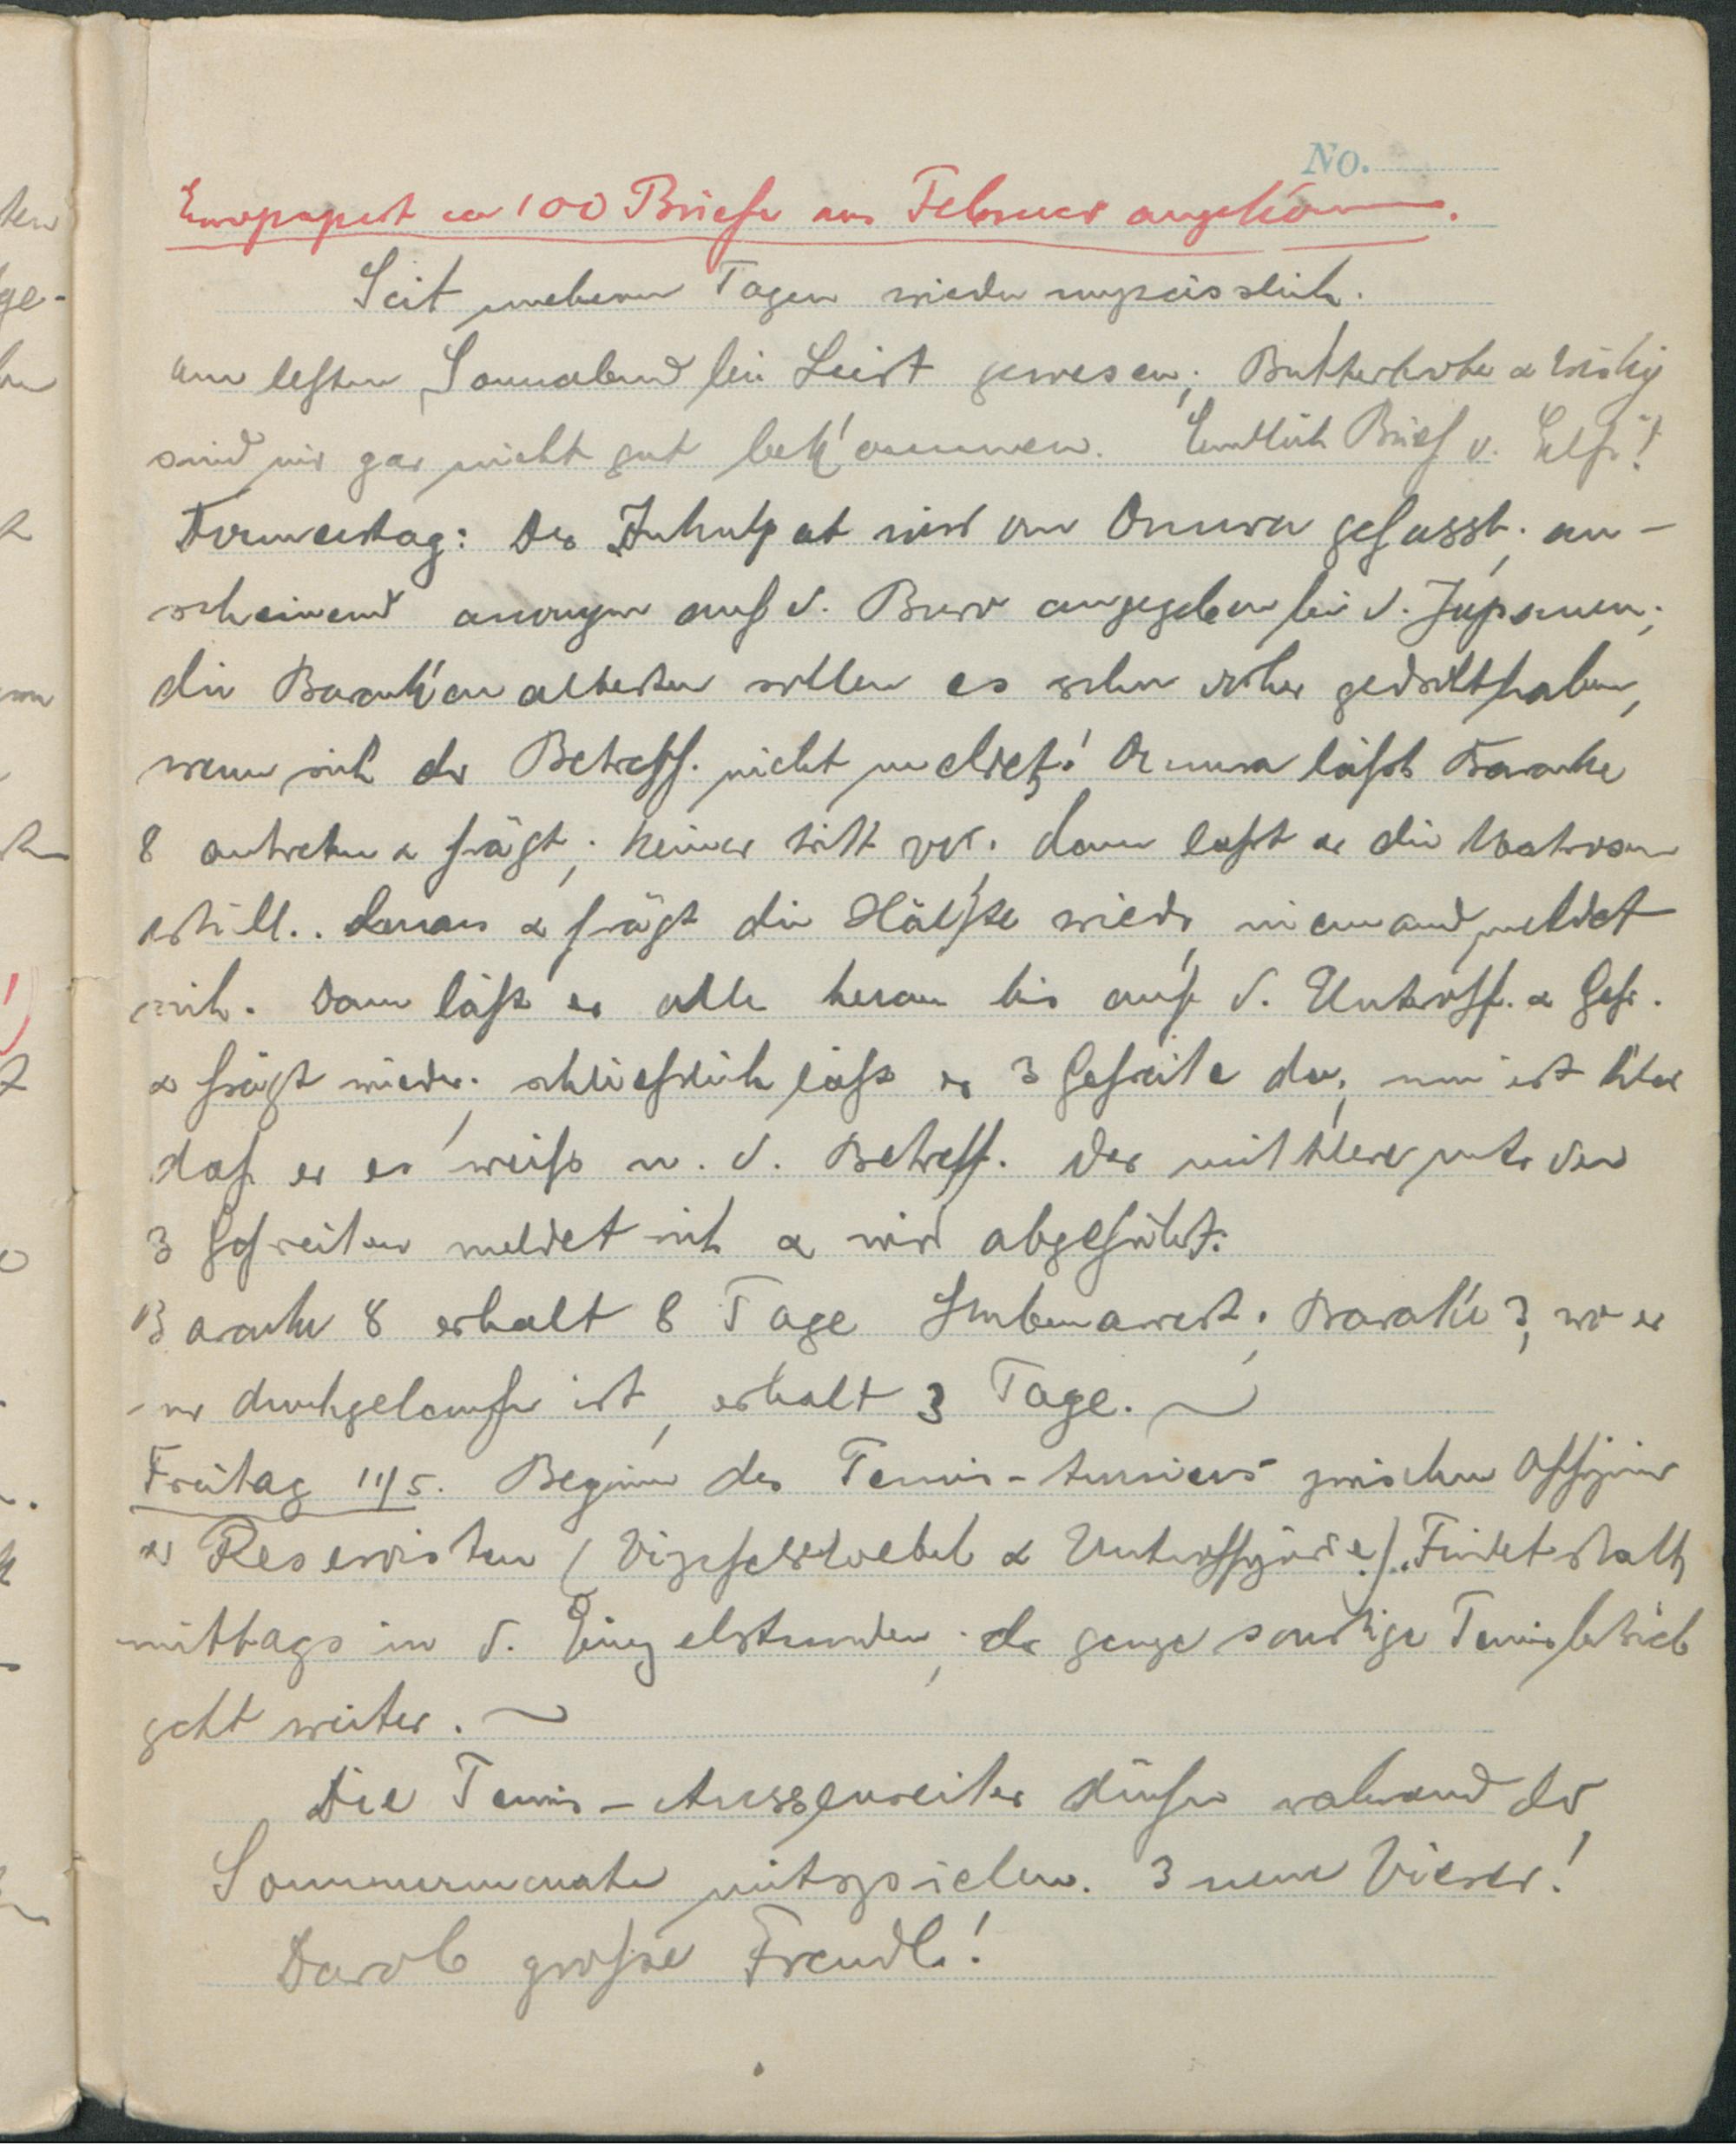 No.
Europapost ca 100 Briefe aus Februar angekomm.
Seit mehrern Tagen wieder unpässlich.
am letzten Sonnabend bei Leist gewesen; Butterbrote &
sind mir gar nicht gut bekommen. Endlich Brief v. Elfi!
Donnerstag: Der wird an Omura gefasst; an-
scheinend anonym auf d. Buro angegeben bei d. Japanern;
die Barackenältesten sollen es schon vorher gedroht haben,
wenn sich der Betreff. nicht meldet! Omura lässt Baracke
8 antreten & frägt; keiner tritt vor. dann lässt er die Matrosen
 & frägt die Hälfte wieder, niemand meldet
sich. Dann läßt er alle heran bis auf d. Unteroff. & Gefr.
& frägt wieder; schließlich läßt er 3 Gefreite da; nun ist klar
daß er es weiß u. d. Betreff. der mittlere unter den
3 Gefreiten meldet sich & wird abgeführt.
Baracke 8 erhalt 8 Tage Stubenarrest; Baracke 3, wo er
nur durchgelaufen ist, erhalt 3 Tage. ~
Freitag 11/5. Beginn des Tennis-turniers zwischen Offiziere
& Reservisten (Vizefeldwebel & Unteroffiziere). Findet statt
mittags in d. Einzelstunden; der ganze sonstige Tennisbetrieb
geht weiter. ~
Die Tennis-Aussenseiter dürfen während der
Sommermonate mitspielen. 3 neue Vierer!
Darob große Freude!